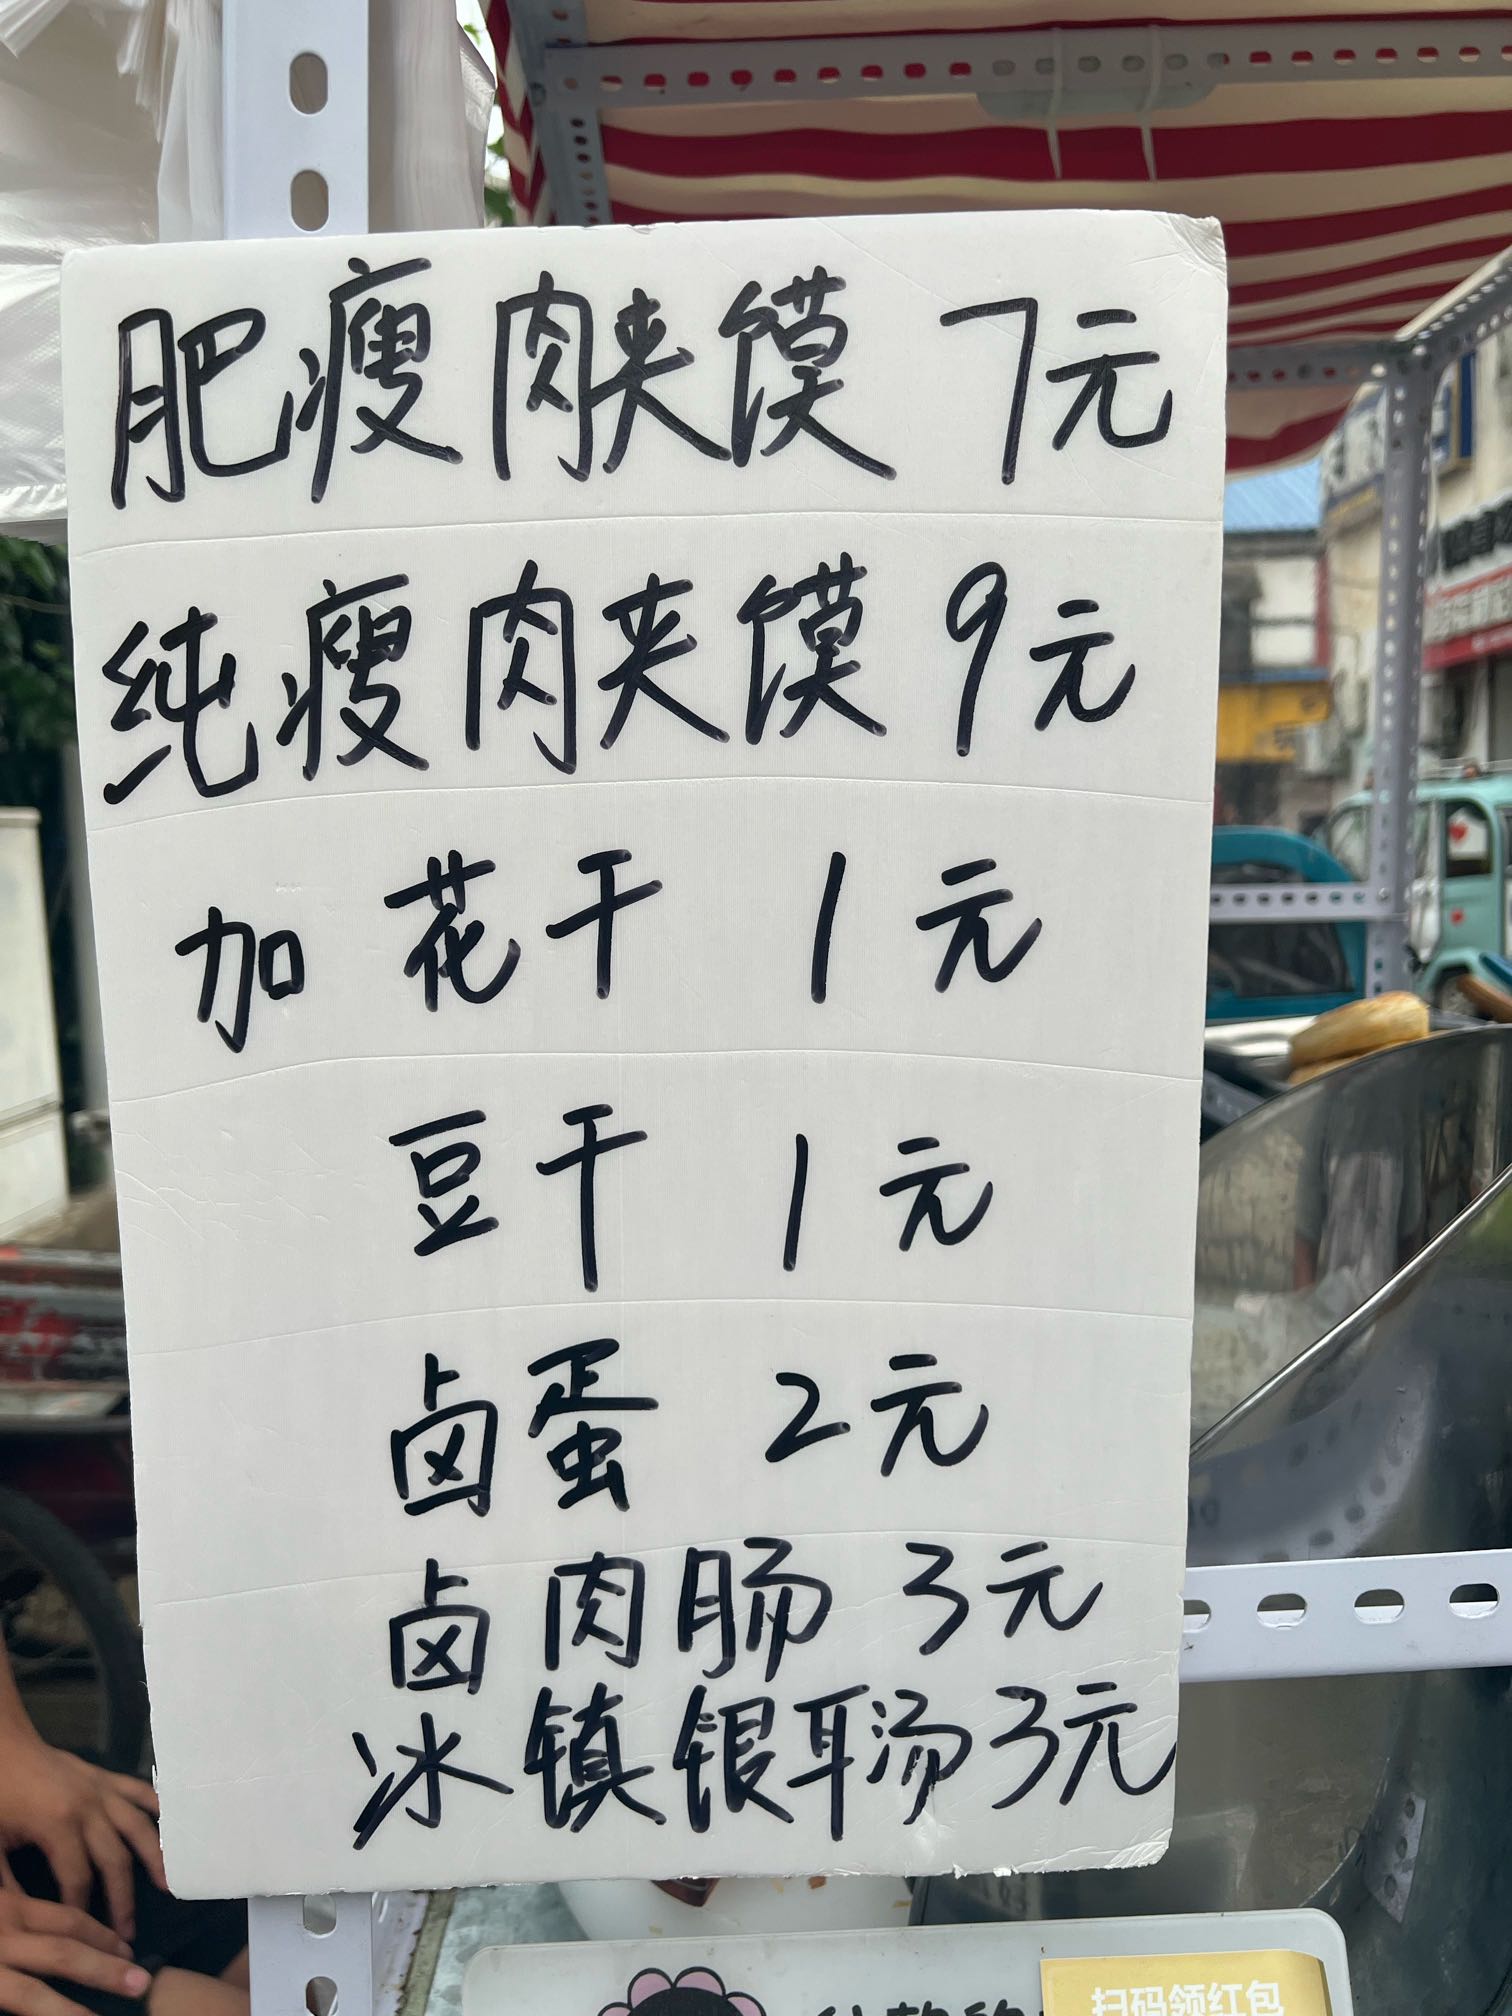 肥瘦肉夹馍 7元
纯瘦肉夹馍 9元
加 花干 1元
豆干 1元
卤蛋 2元
卤肉肠 3元
冰镇银耳汤 3元
扫码领红包